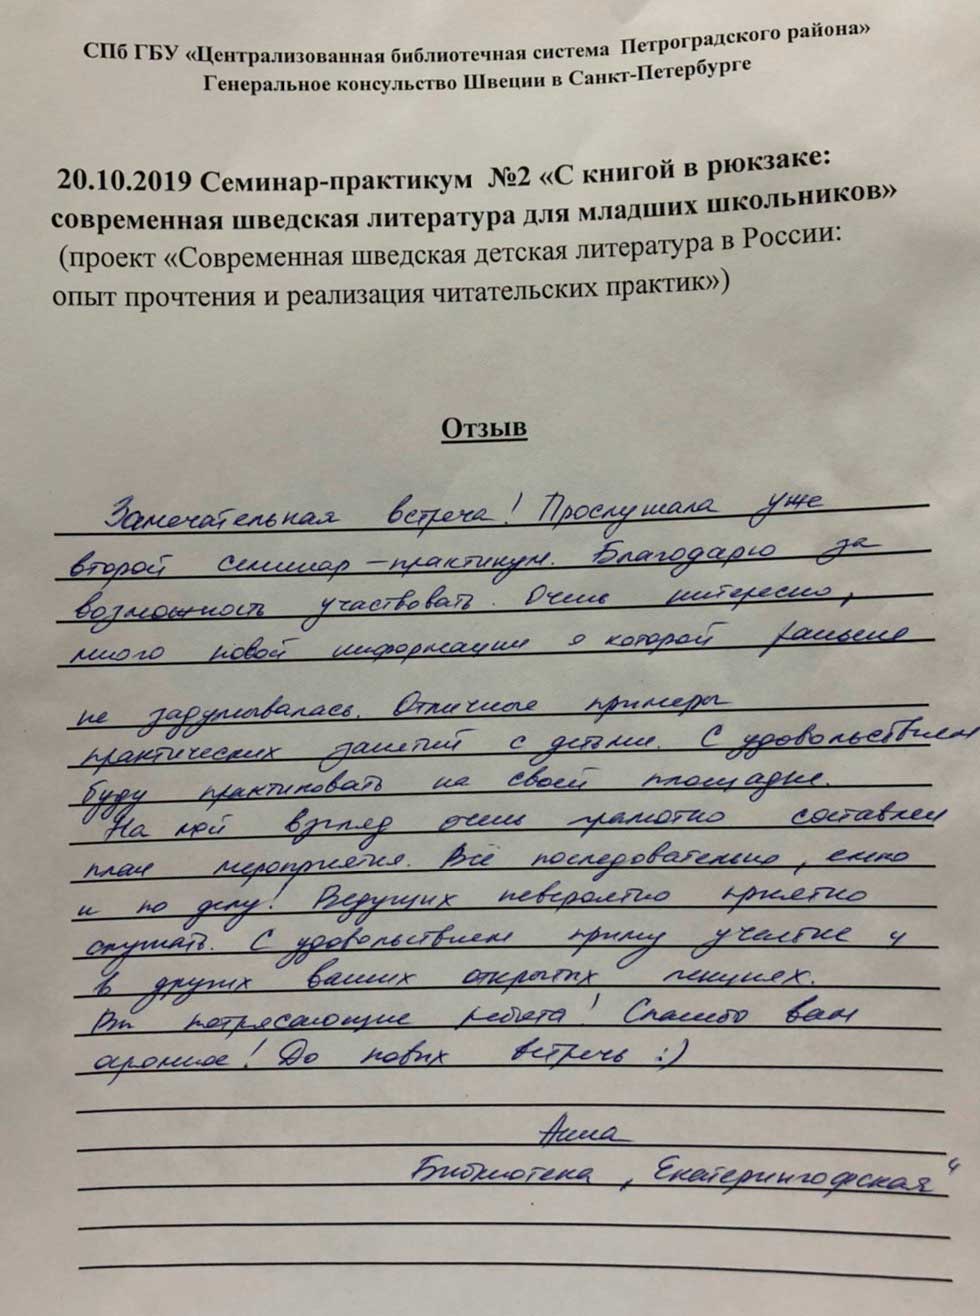 СПб ГБУ «Централизованная библиотечная система Петроградского района»
Генеральное консульство Швеции в Санкт-Петербурге
20.10.2019 Семинар-практикум №2 «С книгой в рюкзаке:
современная шведская литература для младших школьников»
(проект «Современная шведская детская литература в России:
опыт прочтения и реализация читательских практик»)
Отзыв
Замечательная встреча! Прослушала уже
второй семинар-практикум. Благодарю за
возможность участвовать. Очень интересно,
много новой информации я которой раньше
не задумывалась. Отличные примеры
практических занятий с детьми. С удовольствием
буду практиковать на своей площадке.
На мой взгляд очень грамотно составлен
план мероприятия. Всё последовательно, емко
и по делу! Ведущих невероятно приятно
слушать. С удовольствием приму участие и
в других ваших открытых лекциях.
Вы потрясающие ребята! Спасибо вам
огромное! До новых встречь :)
Анна
Библиотека „Екатерингофская“